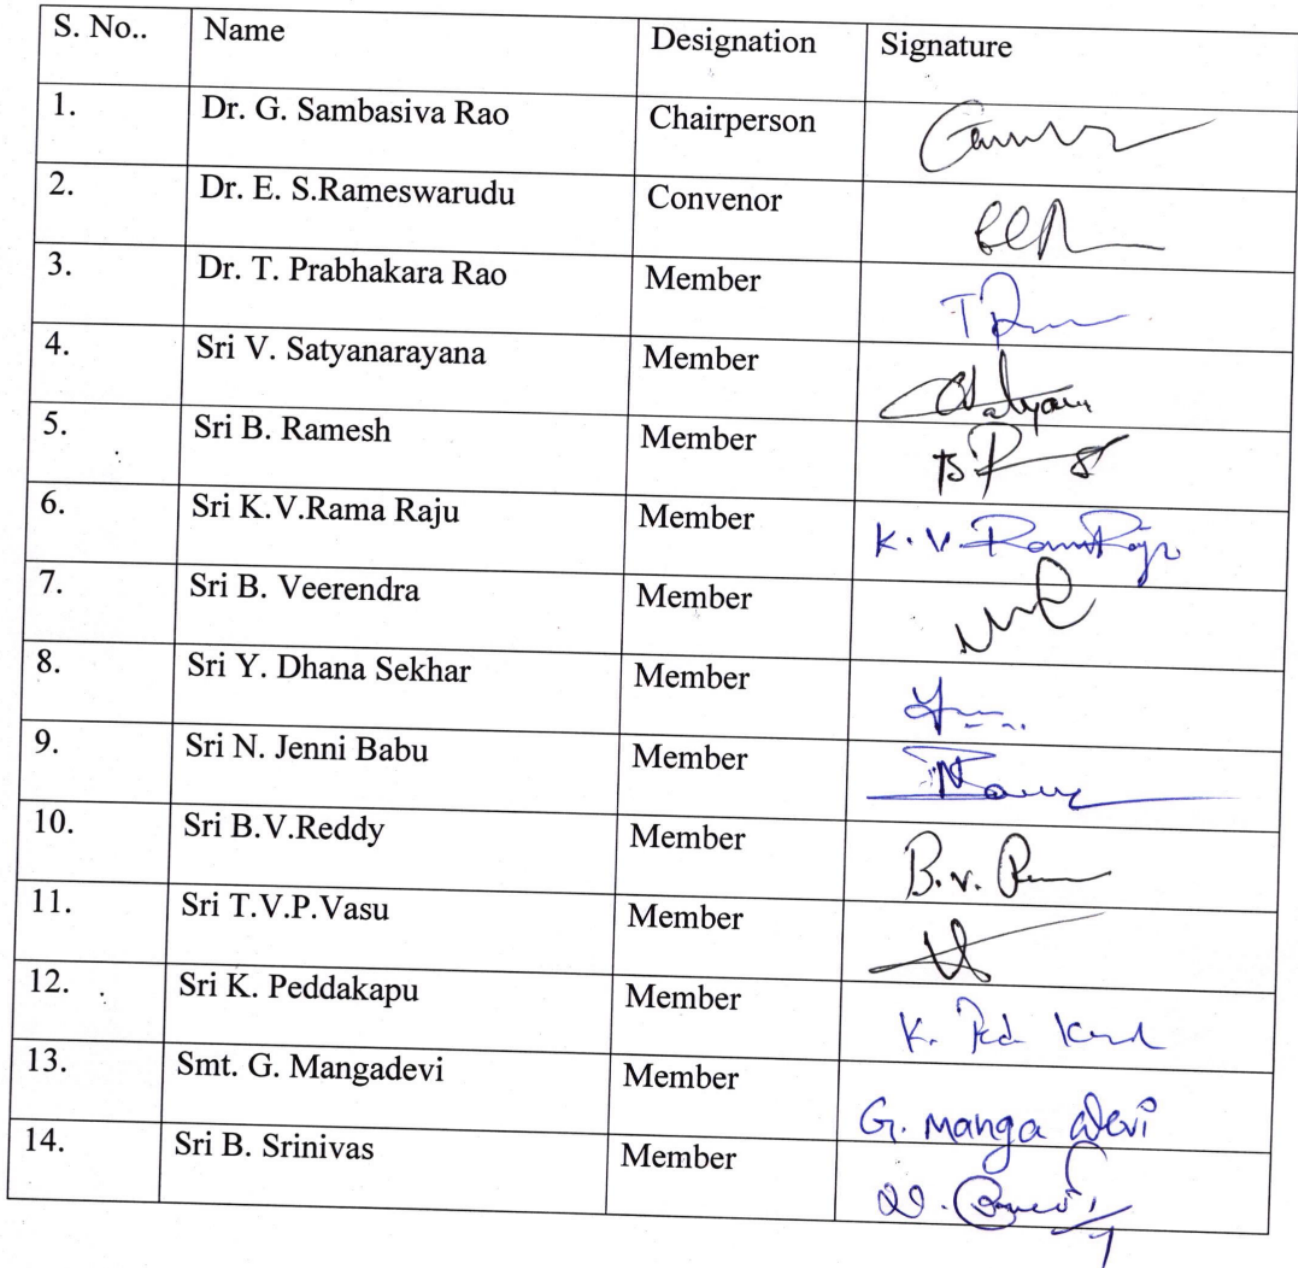 S. No.. Name Designation Signature
1. Dr. G. Sambasiva Rao Chairperson
2. Dr. E. S.Rameswarudu Convenor
3. Dr. T. Prabhakara Rao Member
4. Sri V. Satyanarayana Member
5. Sri B. Ramesh Member
6. Sri K.V.Rama Raju Member K. V. Rama Raju
7. Sri B. Veerendra Member
8. Sri Y. Dhana Sekhar Member
9. Sri N. Jenni Babu Member
10. Sri B.V.Reddy Member B.v.
11. Sri T.V.P.Vasu Member
12. Sri K. Peddakapu Member K.
13. Smt. G. Mangadevi Member G. Manga Devi
14. Sri B. Srinivas Member